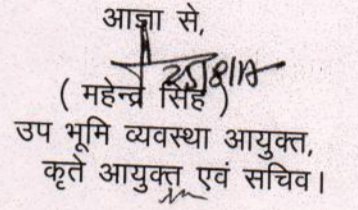 आज्ञा से,
( महेन्द्र सिंह )
उप भूमि व्यवस्था आयुक्त,
कृते आयुक्त एवं सचिव।